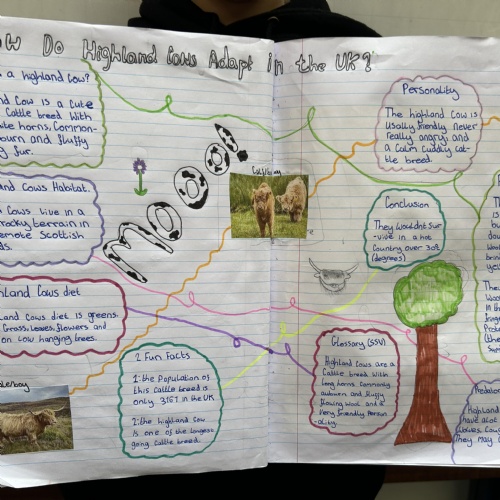 ow Do Highland Cows Adapt in the UK?
a highland Cow?
nd Cow is a Cute
Cattle breed With
te horns, Common-
burn and fluffy
g fur.
nd Cows Habitat.
Cows live in a
rocky terrain in
emote Scottish
ds.
ghland Cows diet
land Cows diet is greens.
Grass, Leaves, flowers and
on Low hanging trees.
MOOOO!
2 Fun Facts
1: the Population of
this Cattle breed is
only 3,161 in the UK
2: the highland Cow
is one of the longest
going Cattle breed.
Personality
The highland Cow is
usally friendly never
really angry and
a Calm Cuddly cat-
tle breed.
Conclusion
They Wouldnt Sur
-vive in a hot
Country over 30°
(degrees)
Glossary (SSV)
Highland Cows are a
Cattle breed With
long horns Commonly
auburn and fluffy
flowing Wool and a
Very friendly Person
-ality.
Highland
have also
Wolves, Cou
They may